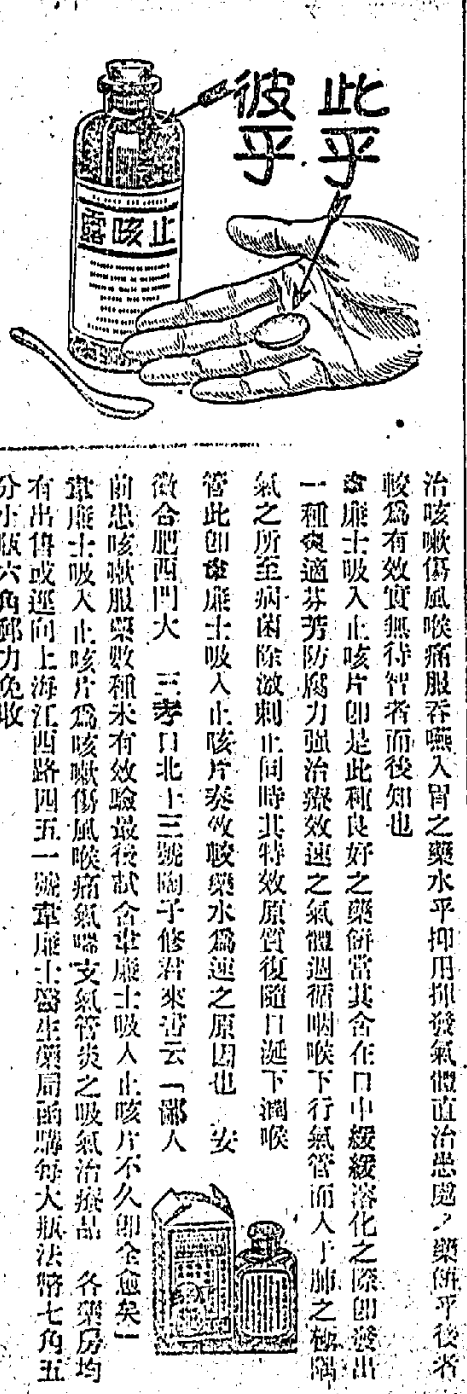 此乎
彼乎
止咳露
治咳嗽傷風喉痛服吞嚥入胃之藥水乎抑用揮發氣體直治患處之藥餅乎後者
較爲有效實無待智者而後知也
韋廉士吸入止咳片卽是此種良好之藥餅當其含在口中緩緩溶化之際卽發出
一種爽適芬芳防腐力强治療效速之氣體週循咽喉下行氣管而入于肺之極隅
氣之所至病菌除激刺止同時其特效原質復隨口涎下潤喉
管此卽韋廉士吸入止咳片奏效較藥水爲速之原因也 安
徽合肥西門大 三孝口北十三號陶子修君來書云「鄙人
前患咳嗽服藥數種未有效驗最後試含韋廉士吸入止咳片不久卽全愈矣」
韋廉士吸入止咳片爲咳嗽傷風喉痛氣喘支氣管炎之吸氣治療品 各藥房均
有出售或逕向上海江西路四五一號韋廉士醫生藥局函購每大瓶法幣七角五
分小瓶六角郵力免收